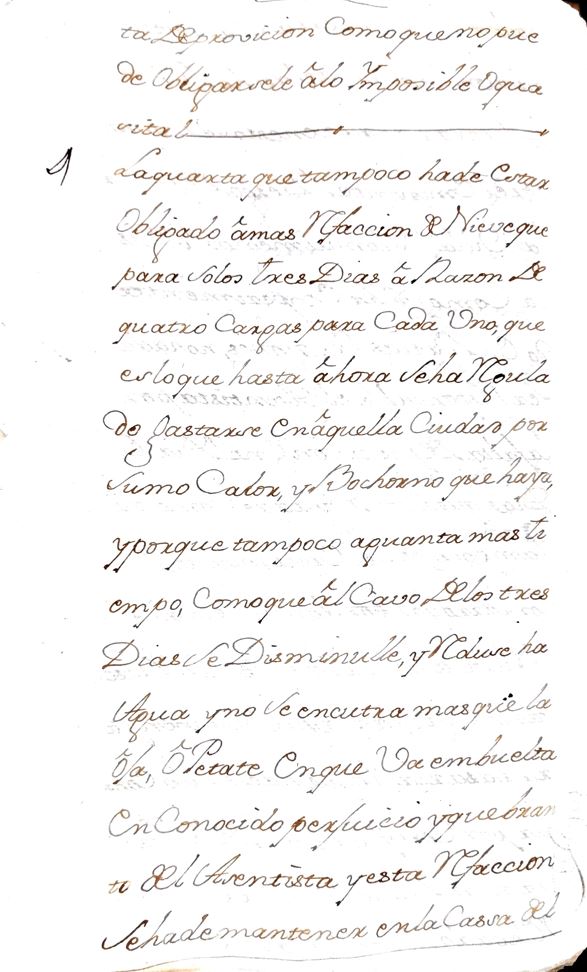 ta De provicion Como que no pue
de Obligarsele â lo Ymposible O qua
si tal
4 La quarta que tampoco ha de Estar
Obligado â mas Rfaccion de Nieve que
para Solos tres Dias â Razon De
quatro Cargas para Cada Uno, que
es lo que hasta âhora Se ha Rgula
do Gastarse En âquella Ciudad por
Sumo Calor, y Bochorno que haya,
y porque tampoco aguanta mas ti
empo, Como que âl Cavo De los tres
Dias Se Disminulle, y Rduse ha
Agua y no Se encutra mas que la
Oja, Ô Petate En que Va embuelta
En Conocido perjuicio y quebran
to del Asentista y esta Rfaccion
Se ha de mantener en la Cassa del